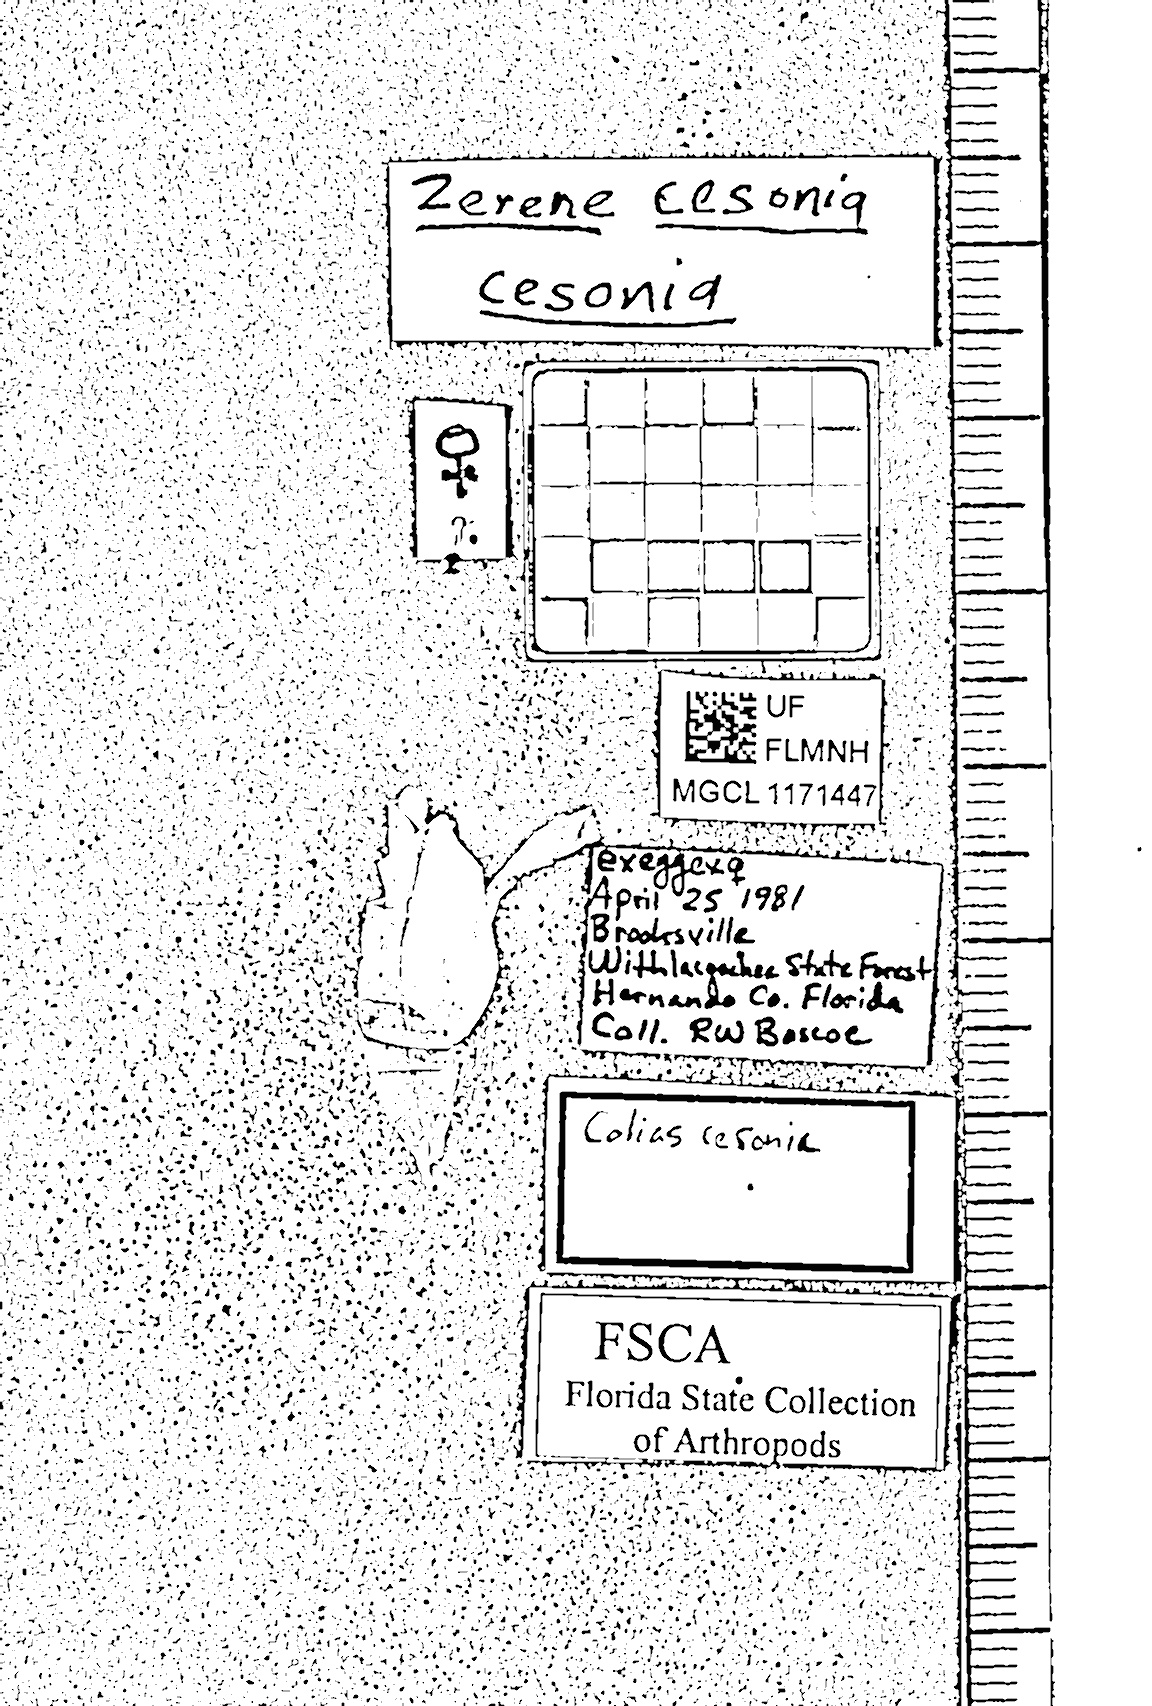 Zerene cesonia
cesonia
♀
?.
UF
FLMNH
MGCL 1171447
April 25 1981
Brooksville
Withlacoochee State Forest
Hernando Co. Florida
Coll. RW Boscoe
Colias cesonia
FSCA
Florida State Collection
of Arthropods